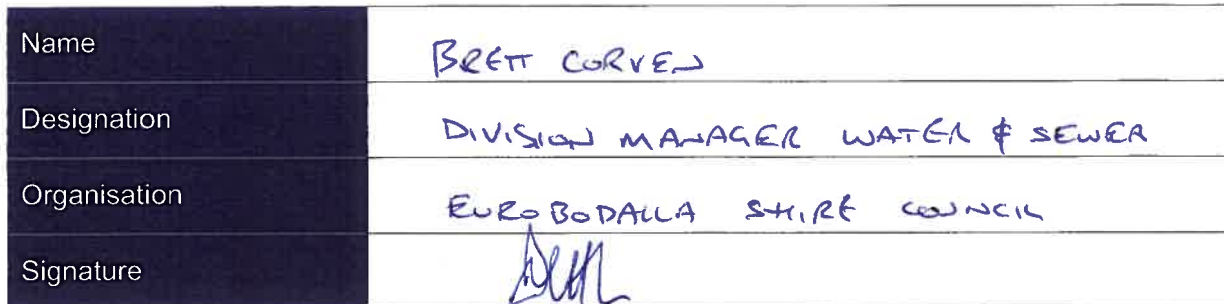 Name BRETT CORVEN
Designation DIVISION MANAGER WATER & SEWER
Organisation EUROBODALLA SHIRE COUNCIL
Signature